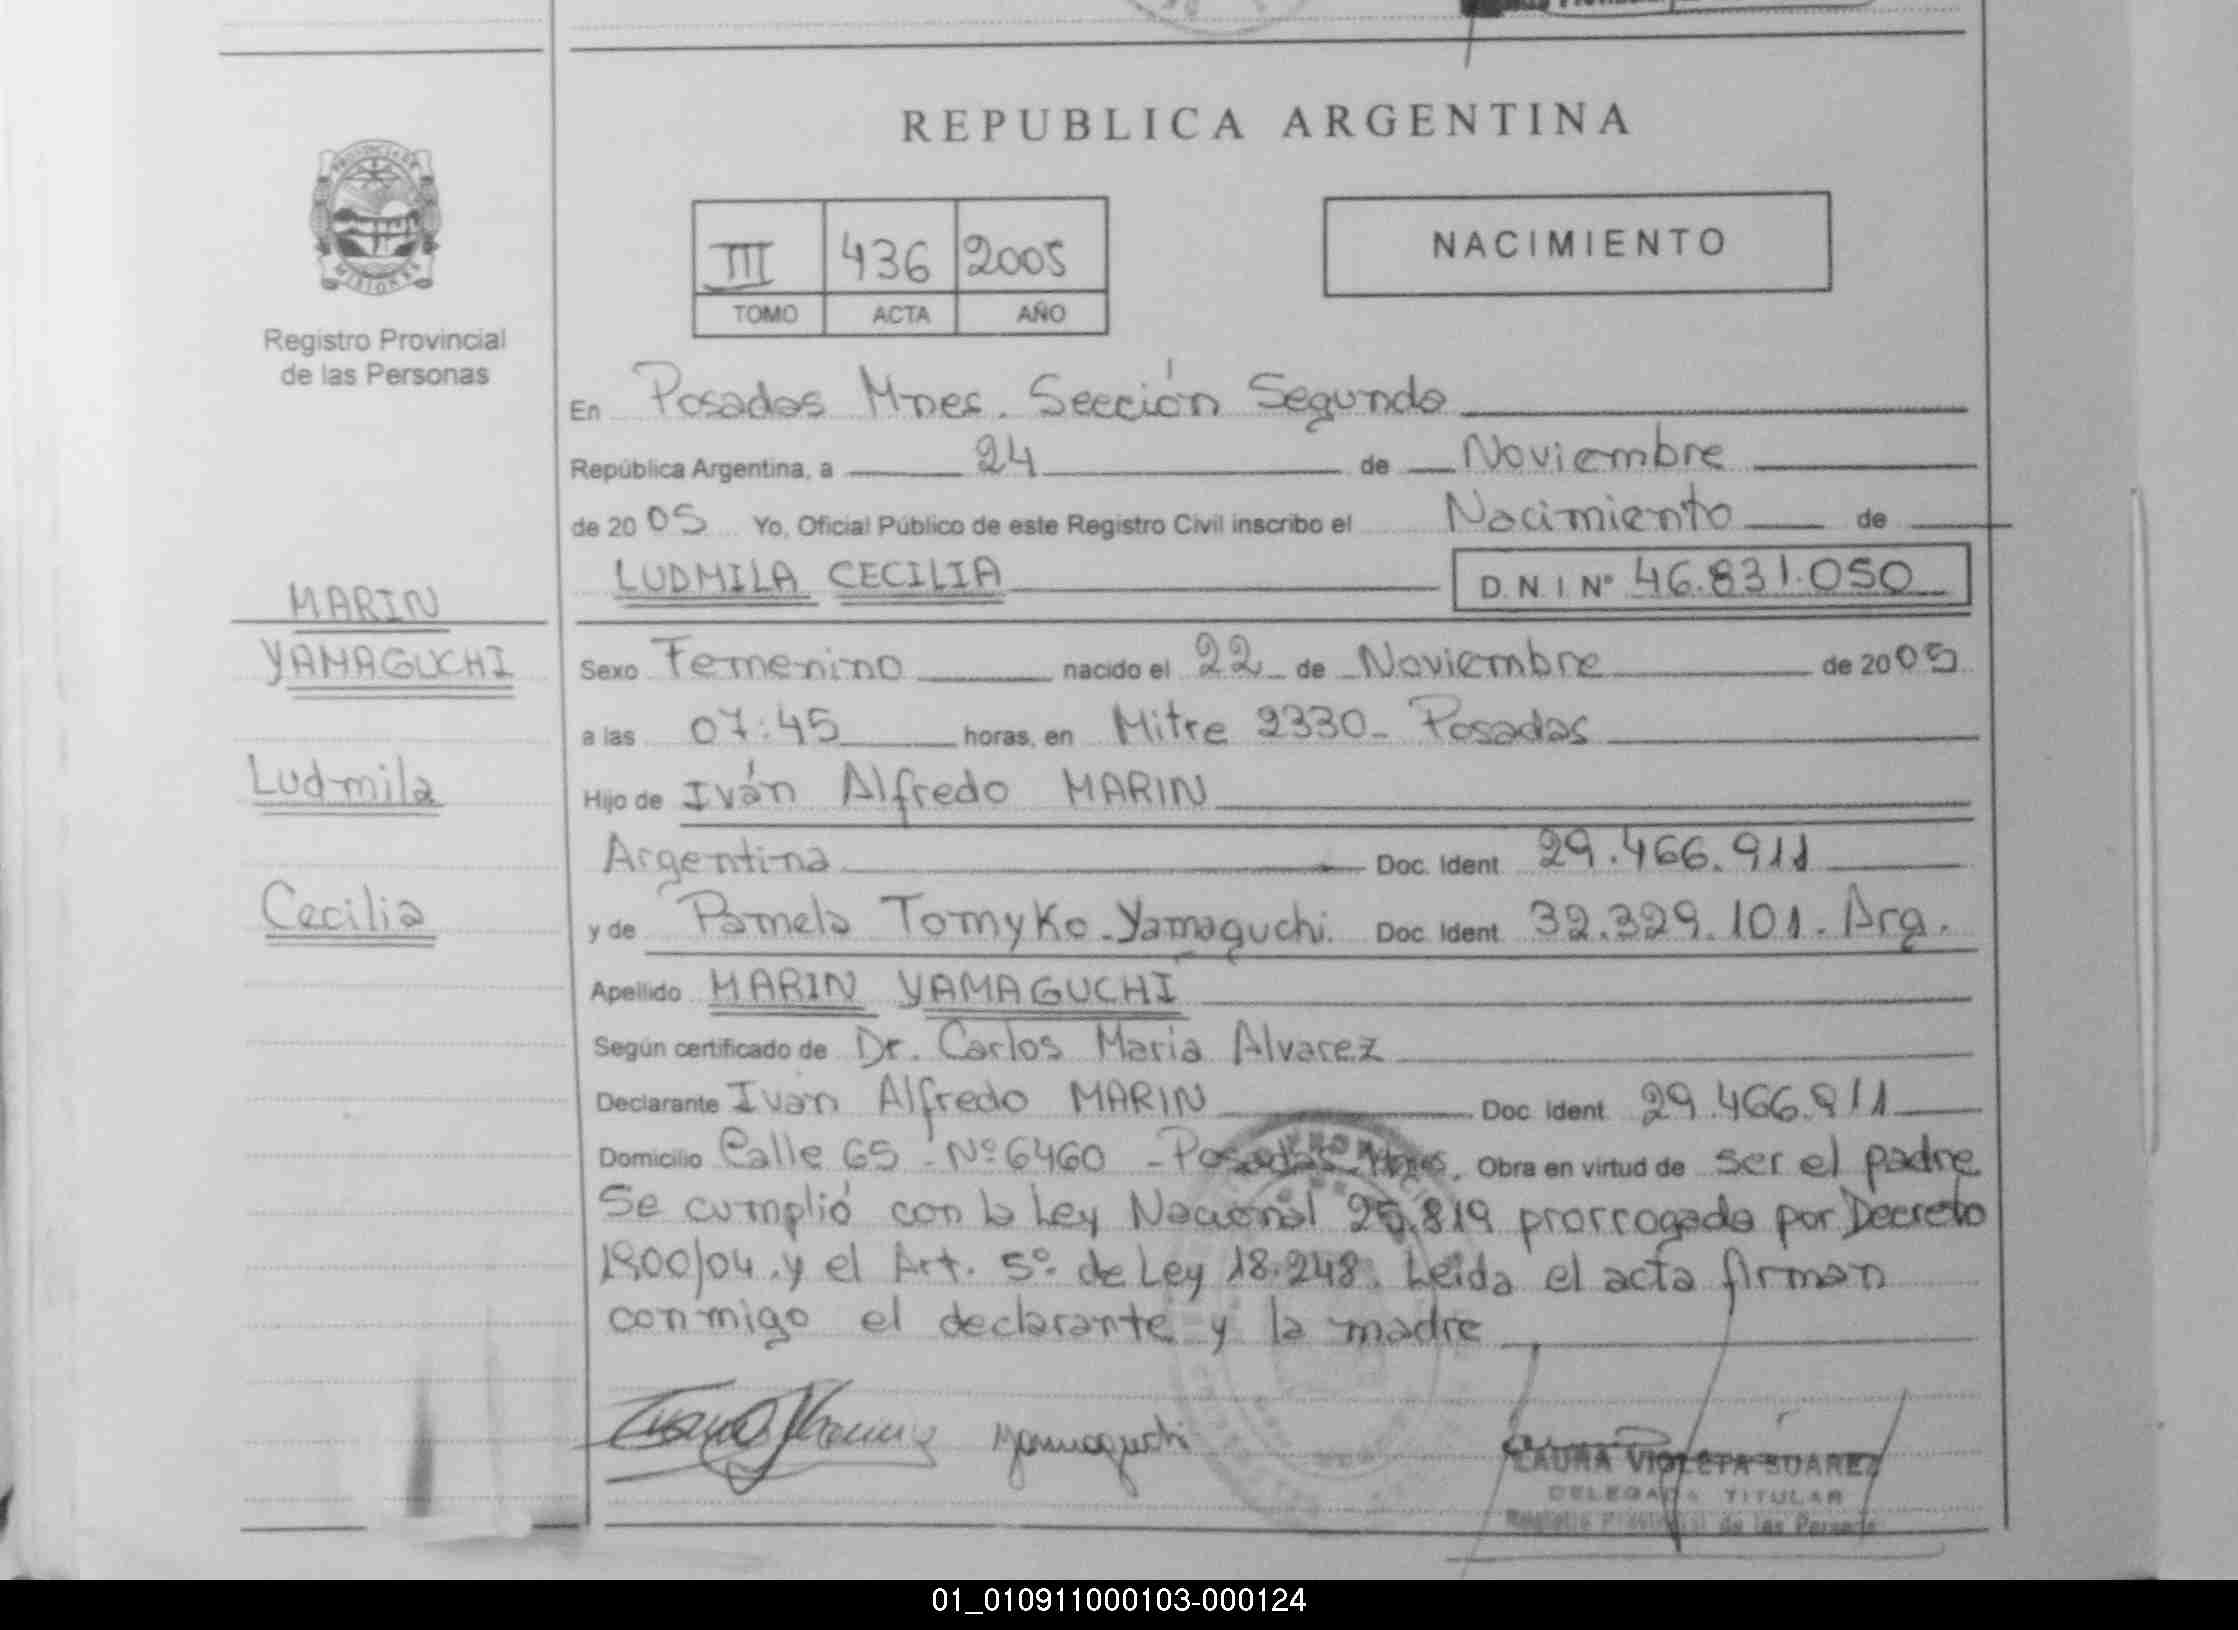 REPUBLICA ARGENTINA
PROVINCIA DE
MISIONES
Registro Provincial
de las Personas
III 436 2005
TOMO ACTA AÑO
NACIMIENTO
En Posadas Mnes. Sección Segunda
República Argentina, a 24 de Noviembre
de 2005 Yo, Oficial Público de este Registro Civil inscribo el Nacimiento de
LUDMILA CECILIA D.N.I. Nº 46.831.050
MARIN
YAMAGUCHI
Ludmila
Cecilia
Sexo Femenino nacido el 22 de Noviembre de 2005
a las 07:45 horas, en Mitre 2330- Posadas
Hijo de Iván Alfredo MARIN
Argentina Doc. Ident 29.466.911
y de Pamela Tomyko-Yamaguchi. Doc. Ident 32.329.101. Arg.
Apellido MARIN YAMAGUCHI
Según certificado de Dr. Carlos Maria Alvarez
Declarante Iván Alfredo MARIN Doc. Ident 29.466.911
Domicilio Calle 65 - Nº 6460 - Posadas Mnes. Obra en virtud de ser el padre
Se cumplió con la Ley Nacional 25.819 prorrogada por Decreto
1900/04. y el Art. 5º de Ley 18.248. Leida el acta firman
conmigo el declarante y la madre
Yamaguchi
LAURA VIOLETA SUAREZ
DELEGADA TITULAR
Registro Provincial de las Personas
01_010911000103-000124